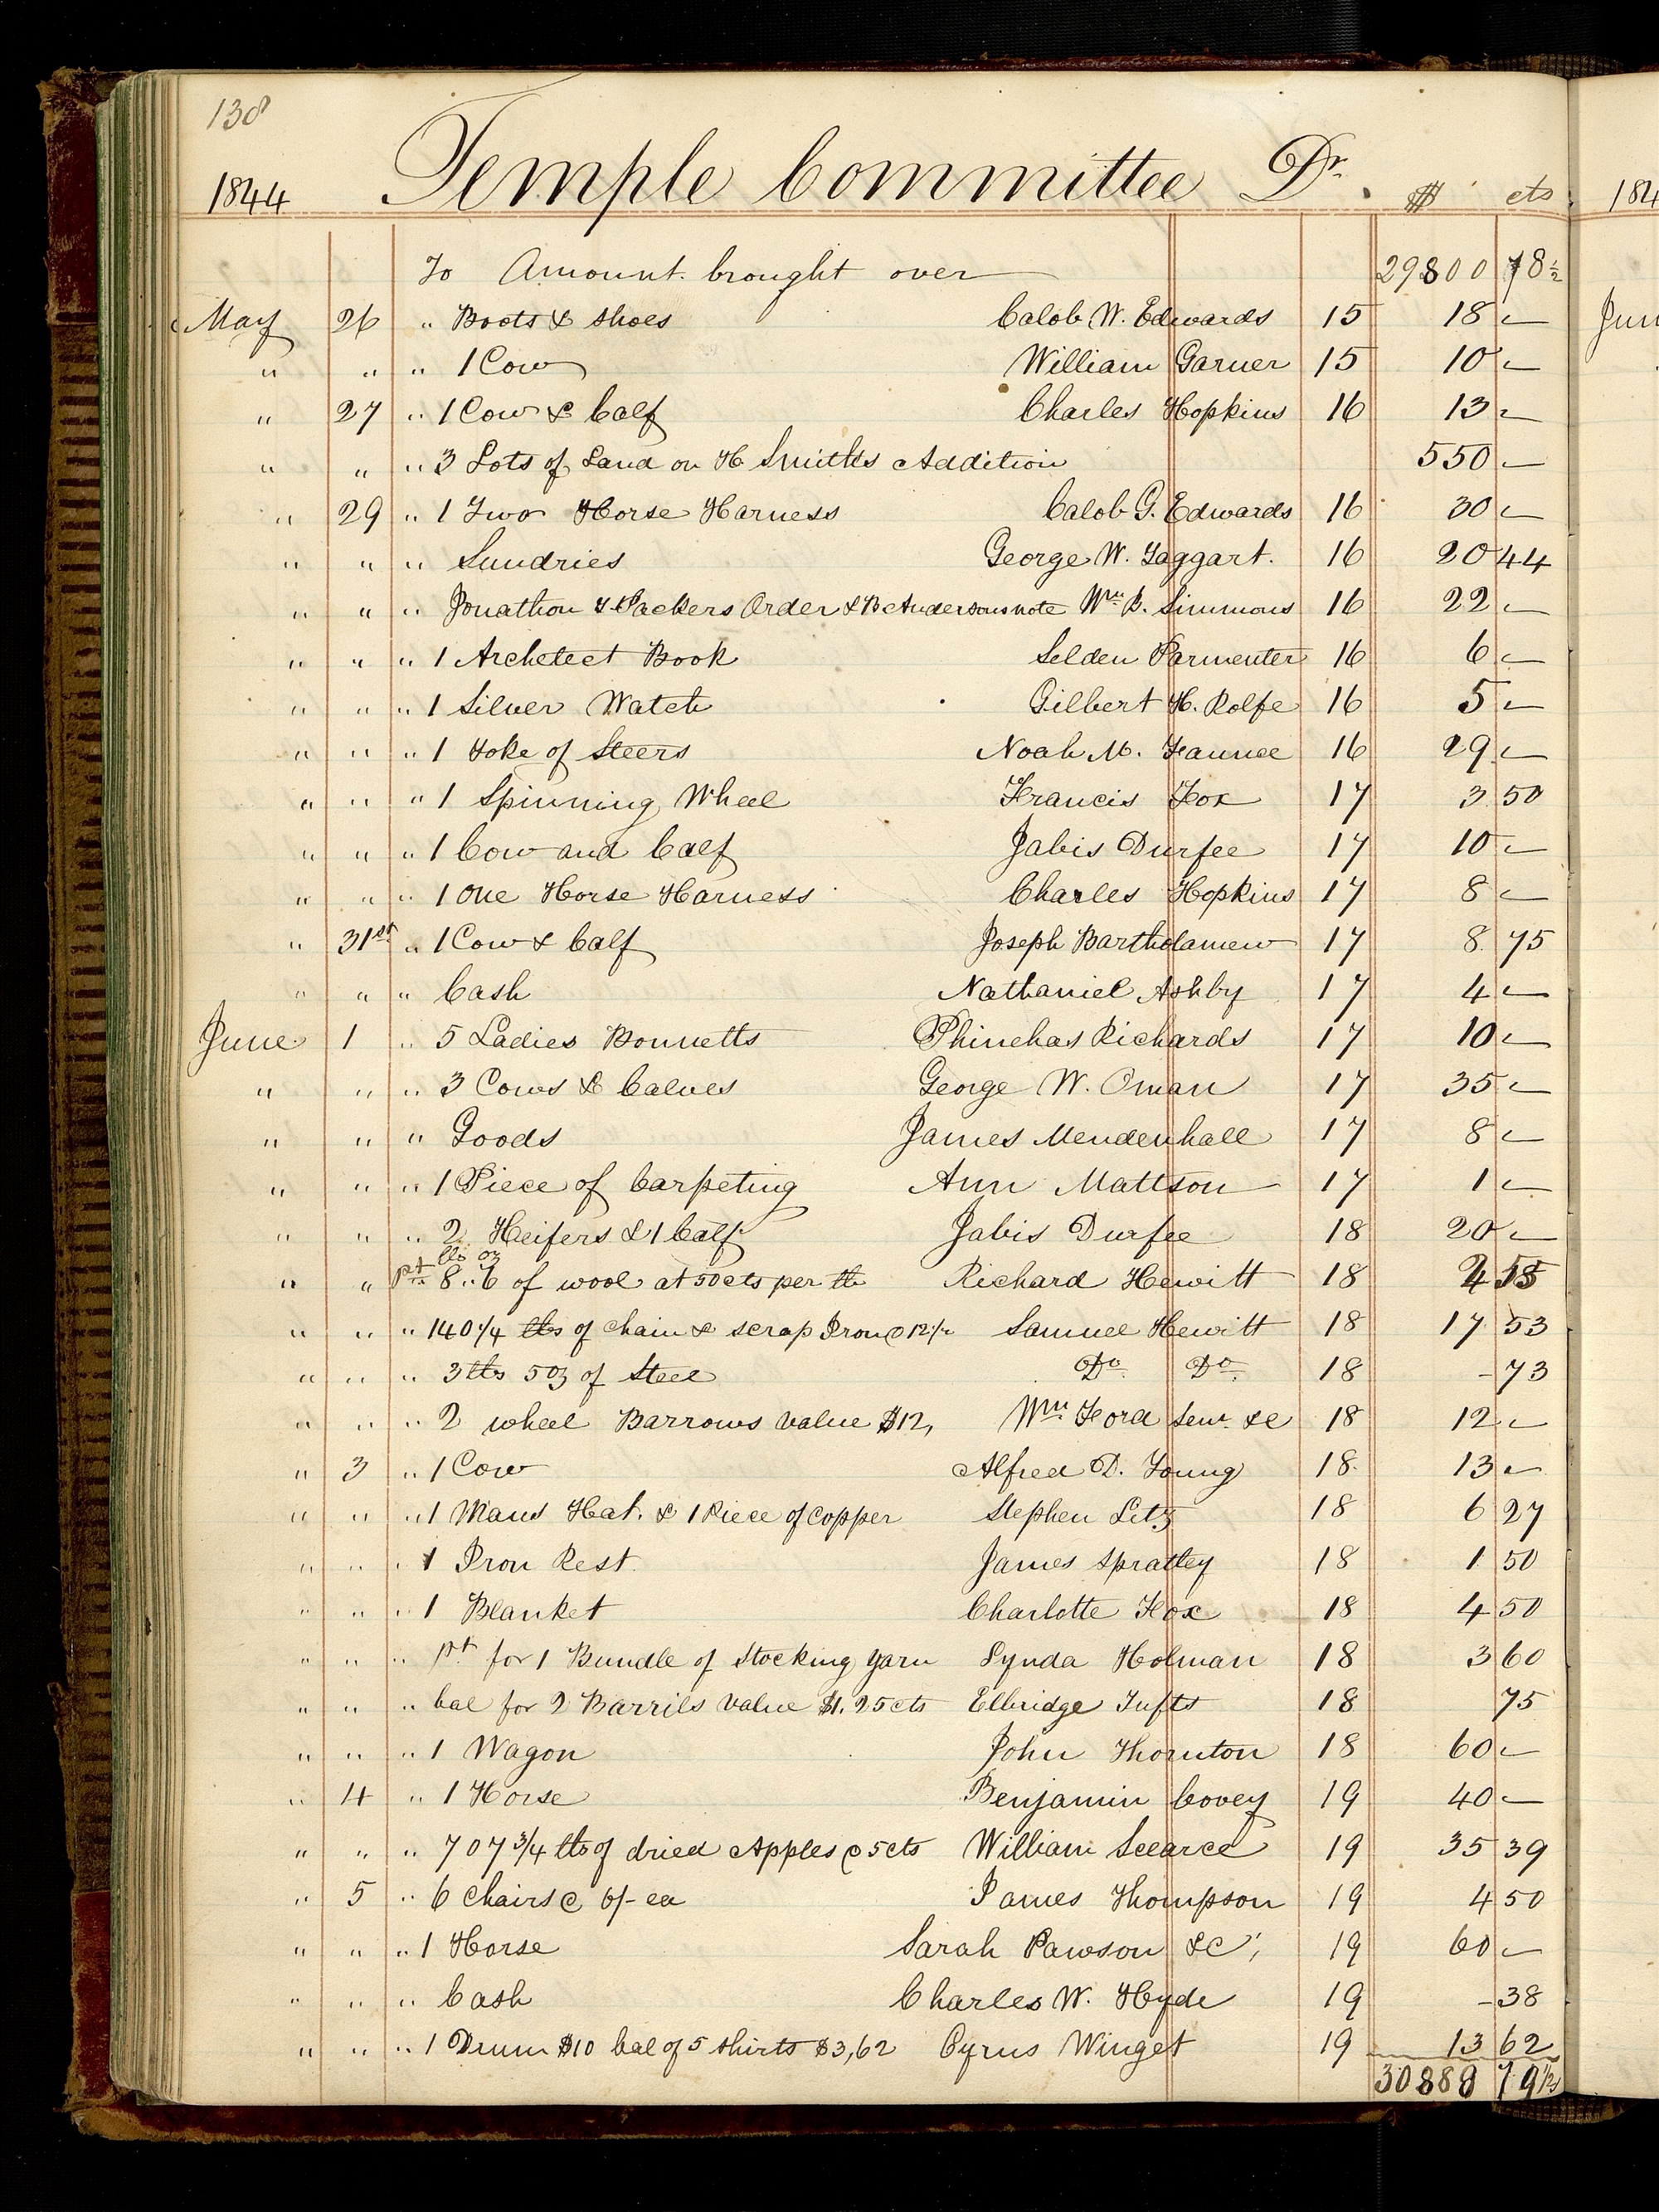 138
1844 Temple Committee Dr. $ cts
To Amount brought over 29800 78½
May 26 " Boots & Shoes Calob W. Edwards 15 18 -
" " " 1 Cow William Garner 15 10 -
" 27 " 1 Cow & Calf Charles Hopkins 16 13 -
" " " 3 Lots of Land on H Smiths Addition 550 -
" 29 " 1 Two Horse Harness Calob G. Edwards 16 30 -
" " " Sundries George W. Taggart. 16 20 44
" " " Jonathon T Packers Order & B Andersons note Wm B. Simmons 16 22 -
" " " 1 Archetect Book Selden Parmenter 16 6 -
" " " 1 Silver Watch Gilbert H. Rolfe 16 5 -
" " " 1 Yoke of Steers Noah M. Faunce 16 29 -
" " " 1 Spinning Wheel Francis Fox 17 3 50
" " " 1 Cow and Calf Jabis Durfee 17 10 -
" " " 1 One Horse Harness Charles Hopkins 17 8 -
" 31st " 1 Cow & Calf Joseph Bartholamew 17 8 75
" " " Cash Nathaniel Ashby 17 4 -
June 1 " 5 Ladies Bonnetts Phinehas Richards 17 10 -
" " " 3 Cows & Calves George W. Oman 17 35 -
" " " Goods James Mendenhall 17 8 -
" " " 1 Piece of Carpeting Ann Mattson 17 1 -
" " " 2 Heifers & 1 Calf Jabis Durfee 18 20 -
lbs oz
" " pt " 8 .. 6 of wool at 50cts per lb Richard Hewitt 18
" " " 140 1/4 lbs of chain & scrap Iron @ 12½ Samuel Hewitt 18 17 53
" " " 3 lbs 5 oz of Steel Do Do 18 - 73
" " " 2 wheel Barrows value $12, Wm Ford Senr. &c 18 12 -
" 3 " 1 Cow Alfred D. Young 18 13 -
" " " 1 Mans Hat. & 1 Piece of copper Stephen Litz 18 6 27
" " " 1 Iron Rest James Spratley 18 1 50
" " " 1 Blanket Charlotte Fox 18 4 50
" " " pt for 1 Bundle of Stocking yarn Lynda Holman 18 3 60
" " " bal for 2 Barrils value $1.25cts Elbridge Tufts 18 75
" " " 1 Wagon John Thornton 18 60 -
" 4 " 1 Horse Benjamin Covey 19 40 -
" " " 707 3/4 lbs of dried Apples @ 5cts William Scearce 19 35 39
" 5 " 6 Chairs @ 6/- ea James Thompson 19 4 50
" " " 1 Horse Sarah Pawson &C', 19 60 -
" " " Cash Charles W. Hyde 19 - 38
" " " 1 Drum $10 bal of 5 shirts $3,62 Cyrus Winget 19 13 62
184
Jun